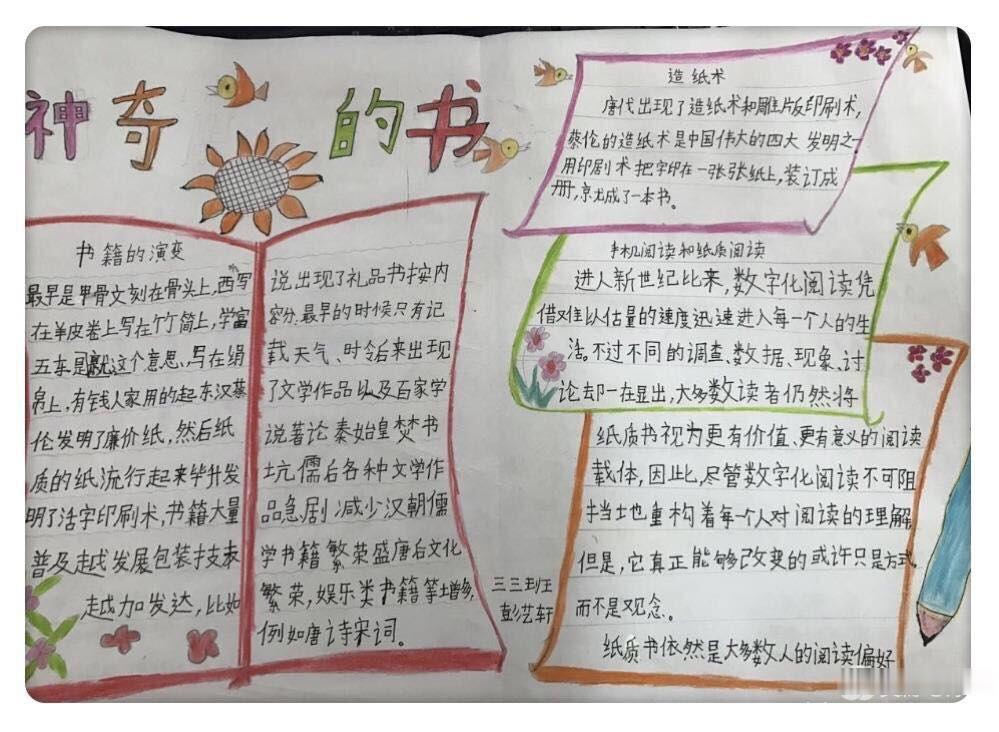 神奇的书
书籍的演变
最早是甲骨文刻在骨头上,西写
在羊皮卷上写在竹简上,学富
五车是就这个意思、写在绢
帛上,有钱人家用的起东汉蔡
伦发明了廉价纸,然后纸
质的纸流行起来毕升发
明了活字印刷术,书籍大量
普及越发展包装技术
越加发达,比如
说出现了礼品书按内
容分.最早的时候只有记
载天气、时令后来出现
了文学作品以及百家学
说著论秦始皇焚书
坑儒后各种文学作
品急剧减少汉朝儒
学书籍繁荣盛唐后文化
繁荣,娱乐类书籍等增多,
例如唐诗宋词。
造纸术
唐代出现了造纸术和雕版印刷术,
蔡伦的造纸术是中国伟大的四大发明之一
用印刷术把字印在一张张纸上,装订成
册,京尤成了一本书。
手机阅读和纸质阅读
进入新世纪比来,数字化阅读凭
借难以估量的速度迅速进入每一个人的生
活。不过不同的调查、数据、现象、讨
论却一在显出,大多数读者仍然将
纸质书视为更有价值、更有意义的阅读
载体,因此,尽管数字化阅读不可阻
挡地重构着每个人对阅读的理解
但是,它真正能够改变的或许只是方式
而不是观念。
纸质书依然是大多数人的阅读偏好
三三班
彭艺轩